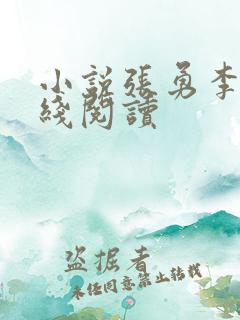 小説張勇李
綫閱讀
盜掘者
未經同意禁止轉載